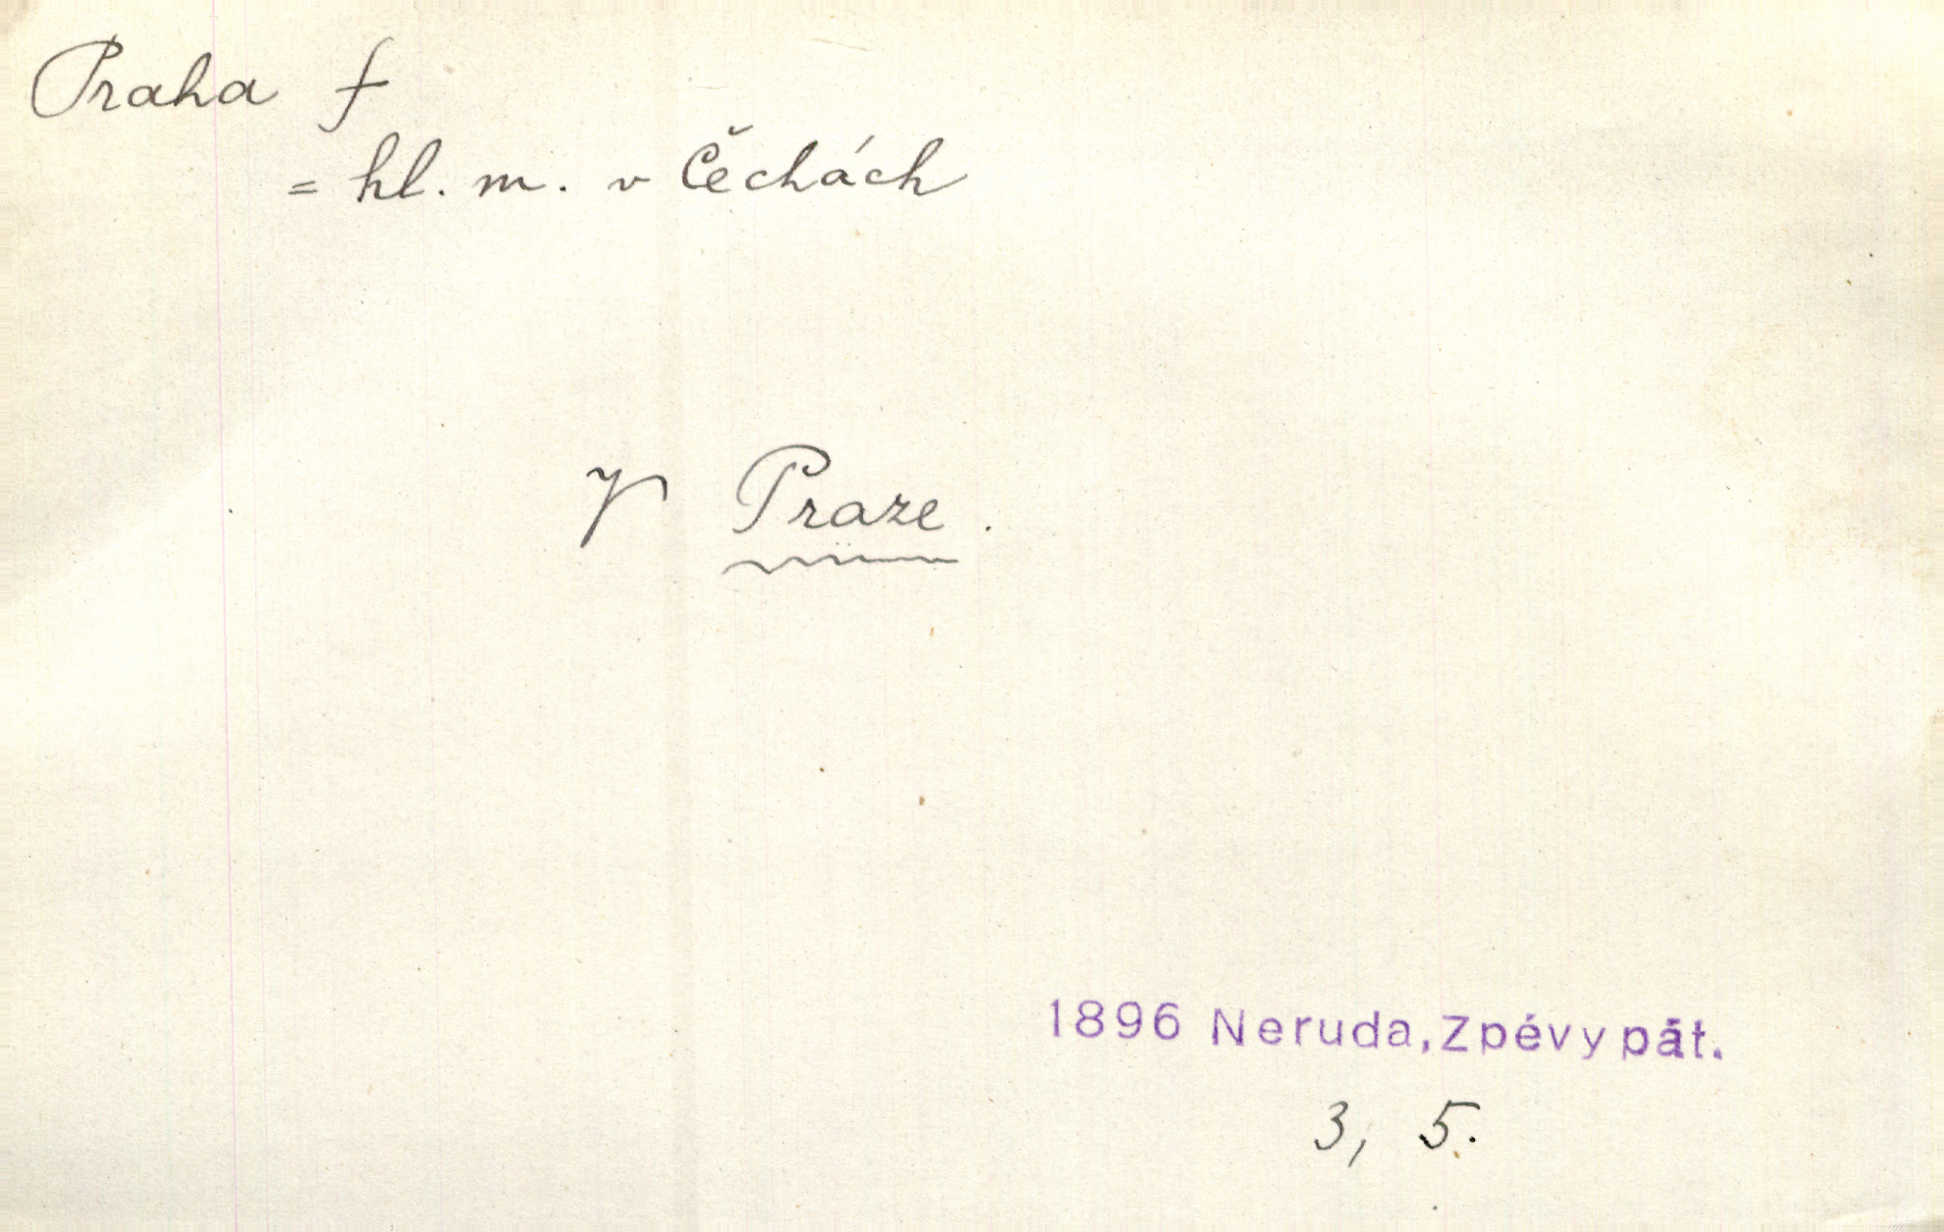 Praha f
= hl. m. v Čechách
V Praze.
1896 Neruda, Zpěvy pát.
3, 5.